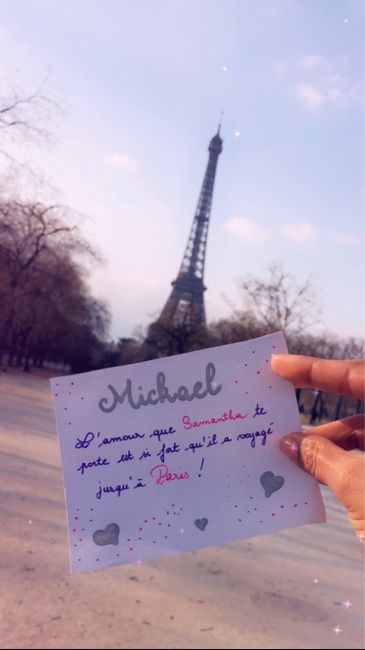 Michael
L'amour que Samantha te
porte est si fot qu'il a voyagé
jusqu'à Paris !